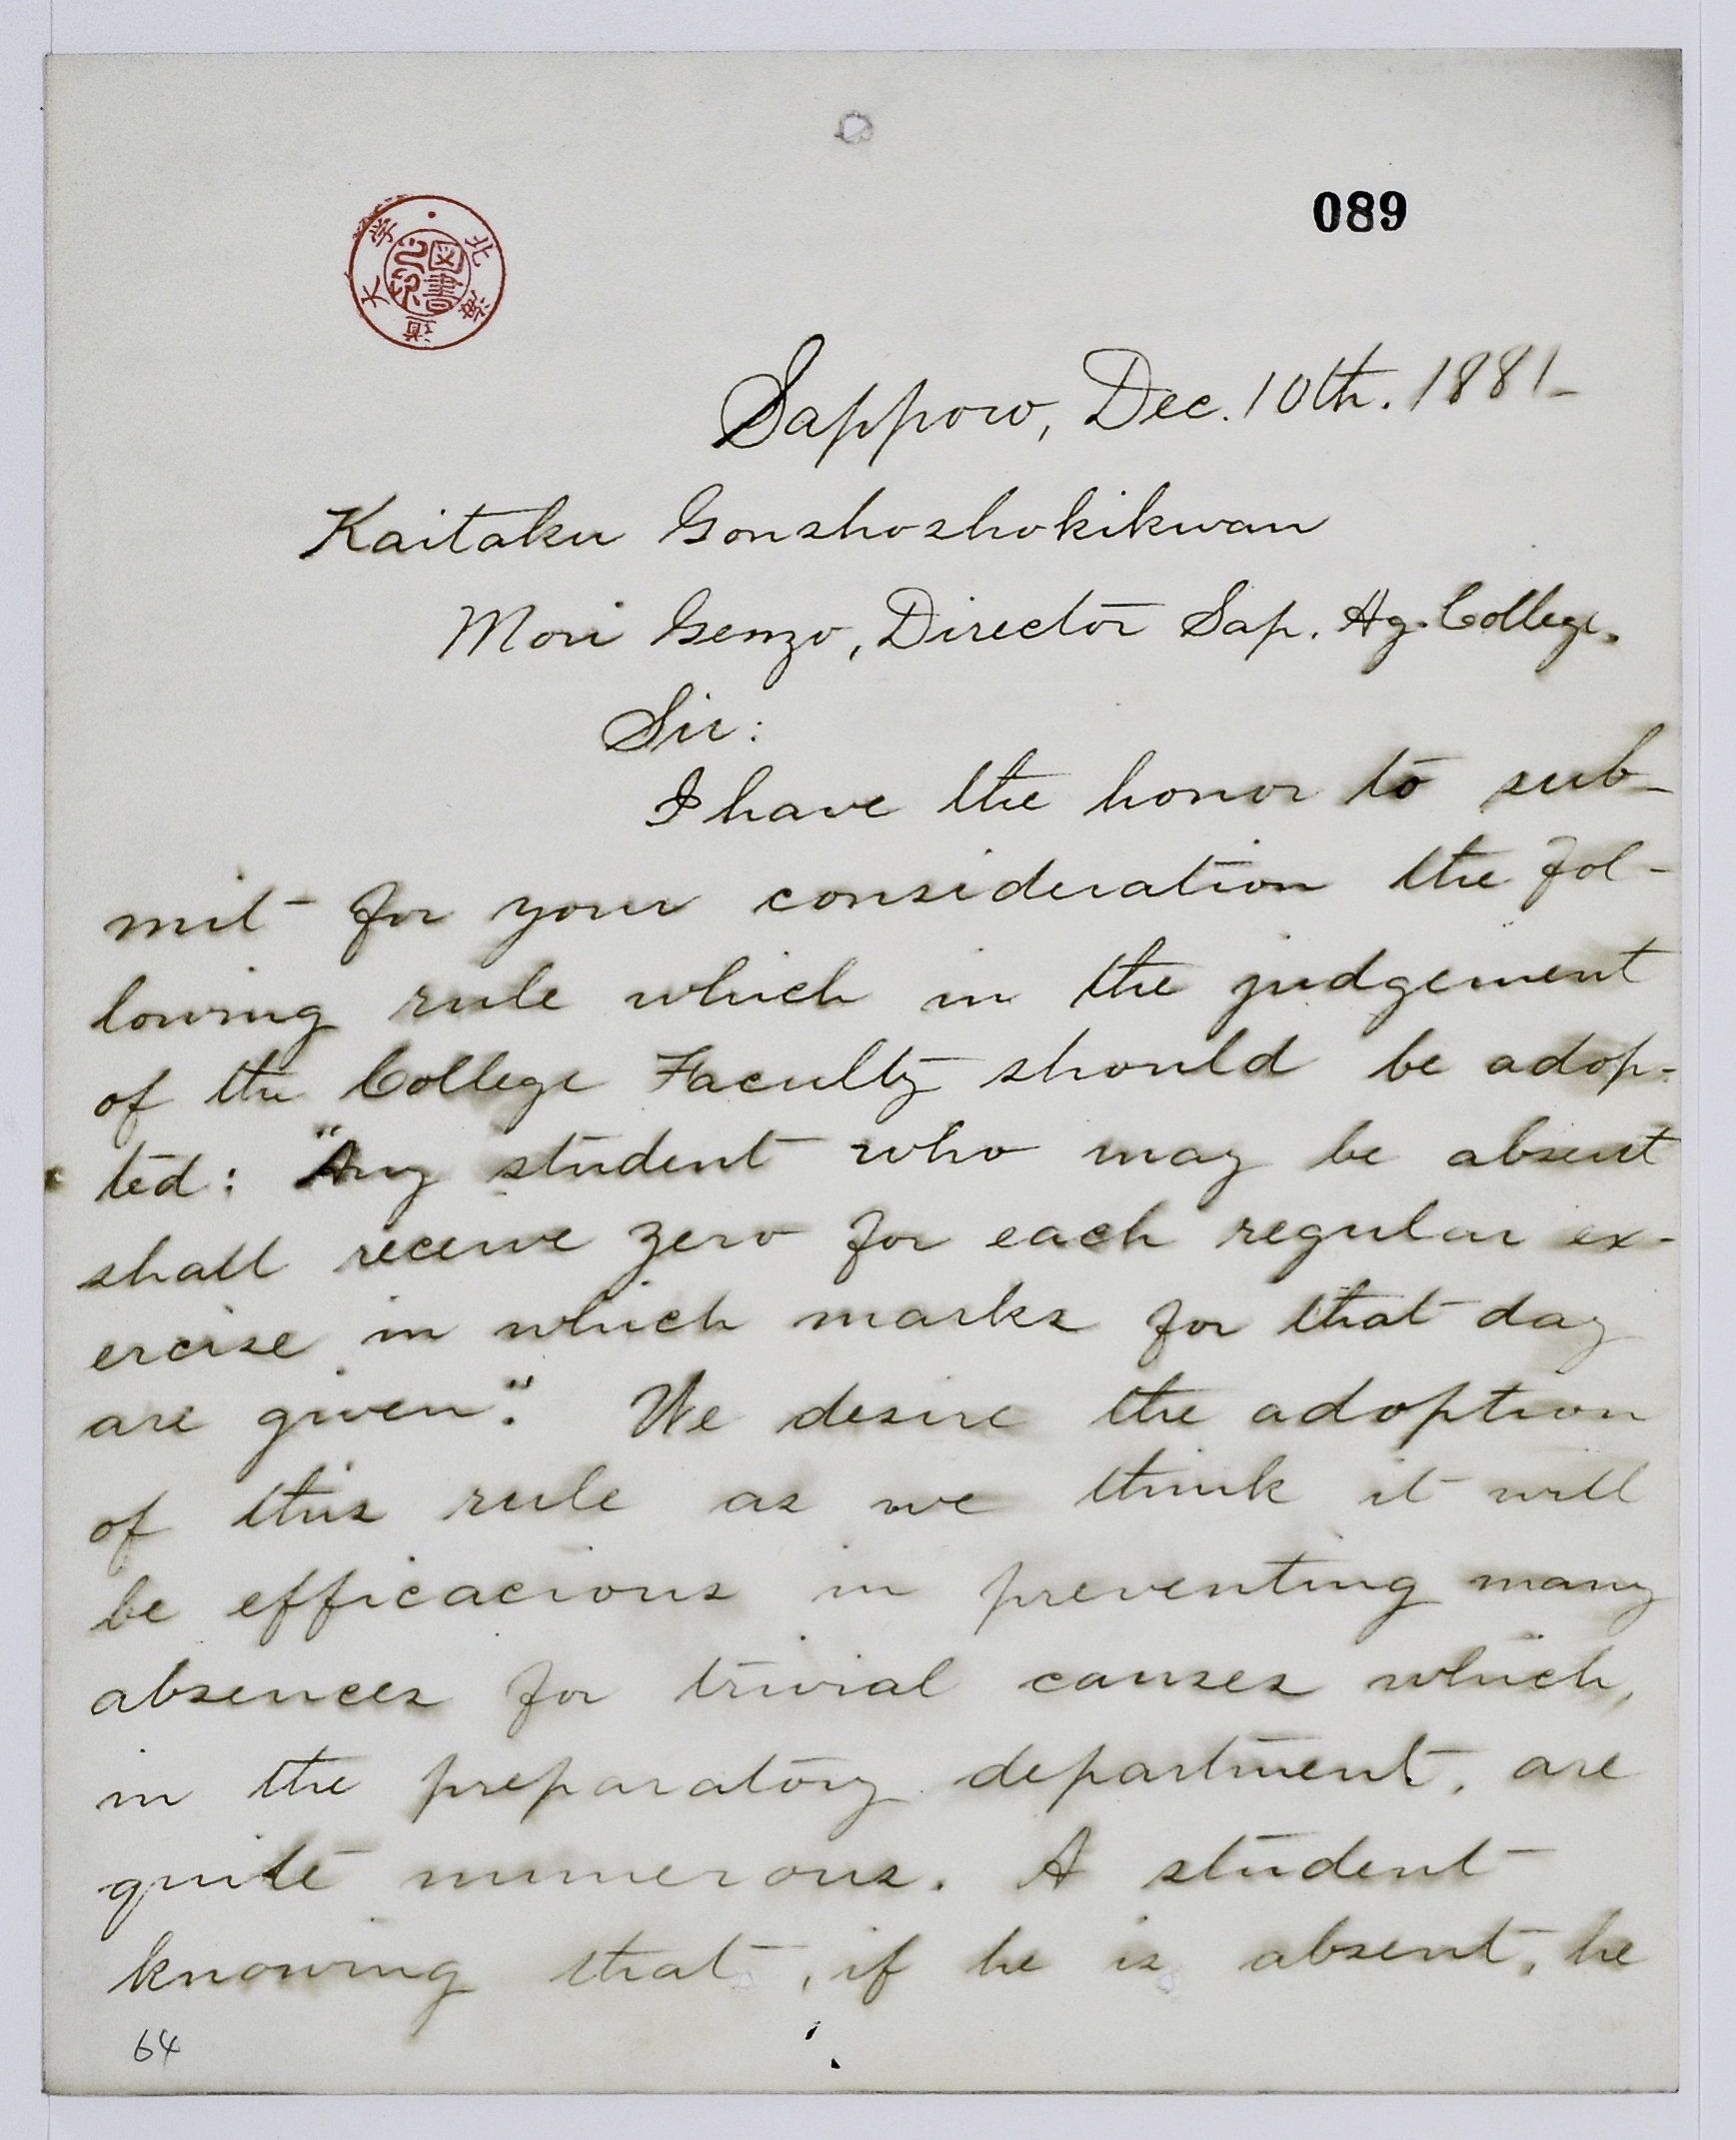 089
北海道大学
図書
Sapporo, Dec. 10th. 1881-
Kaitaku Gonshoshokikwan
Mori Genzo, Director Sap. Ag. College.
Sir:
I have the honor to sub-
mit for your consideration the fol-
lowing rule which in the judgement
of the College Faculty should be adop-
ted: "Any student who may be absent
shall receive zero for each regular ex-
ercise in which marks for that day
are given". We desire the adoption
of this rule as we think it will
be efficacious in preventing many
absences for trivial causes which,
in the preparatory department, are
quite numerous. A student
knowing that, if he is absent, he
64